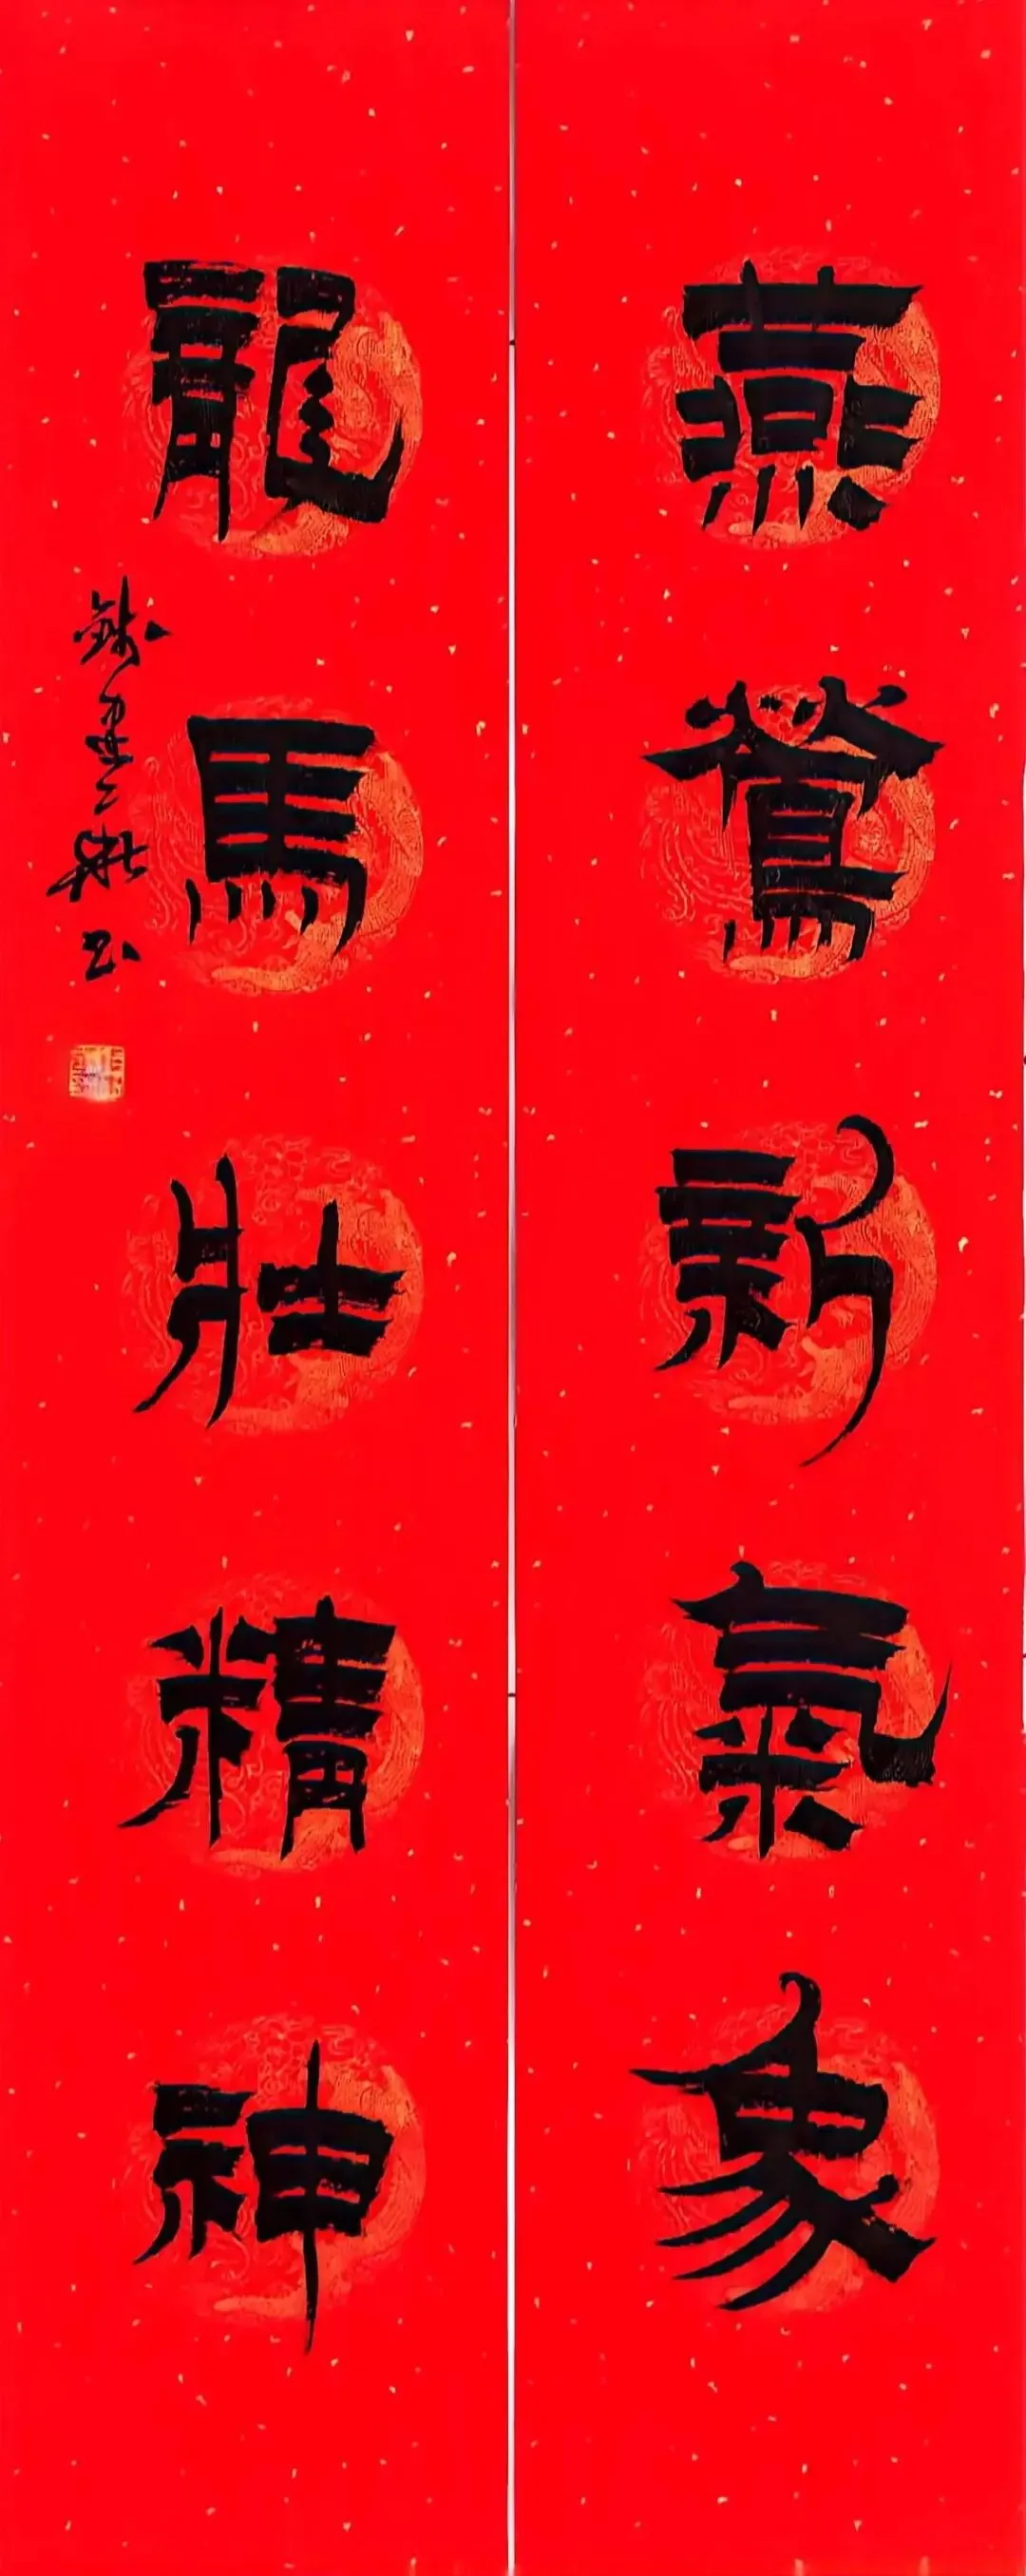 燕鶯新氣象
龍馬壯精神